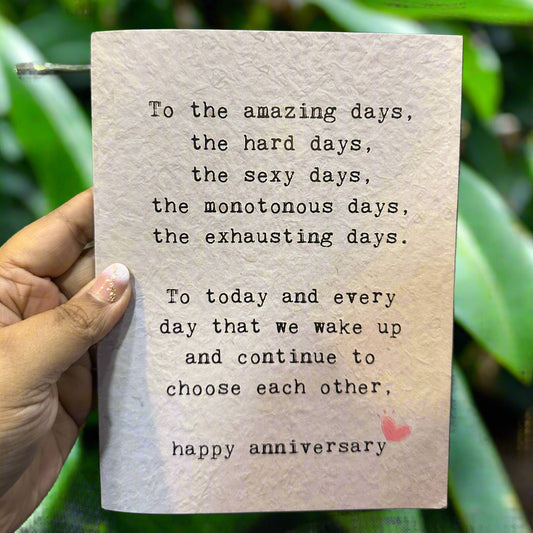 To the amazing days,
the hard days,
the sexy days,
the monotonous days,
the exhausting days.
To today and every
day that we wake up
and continue to
choose each other,
happy anniversary